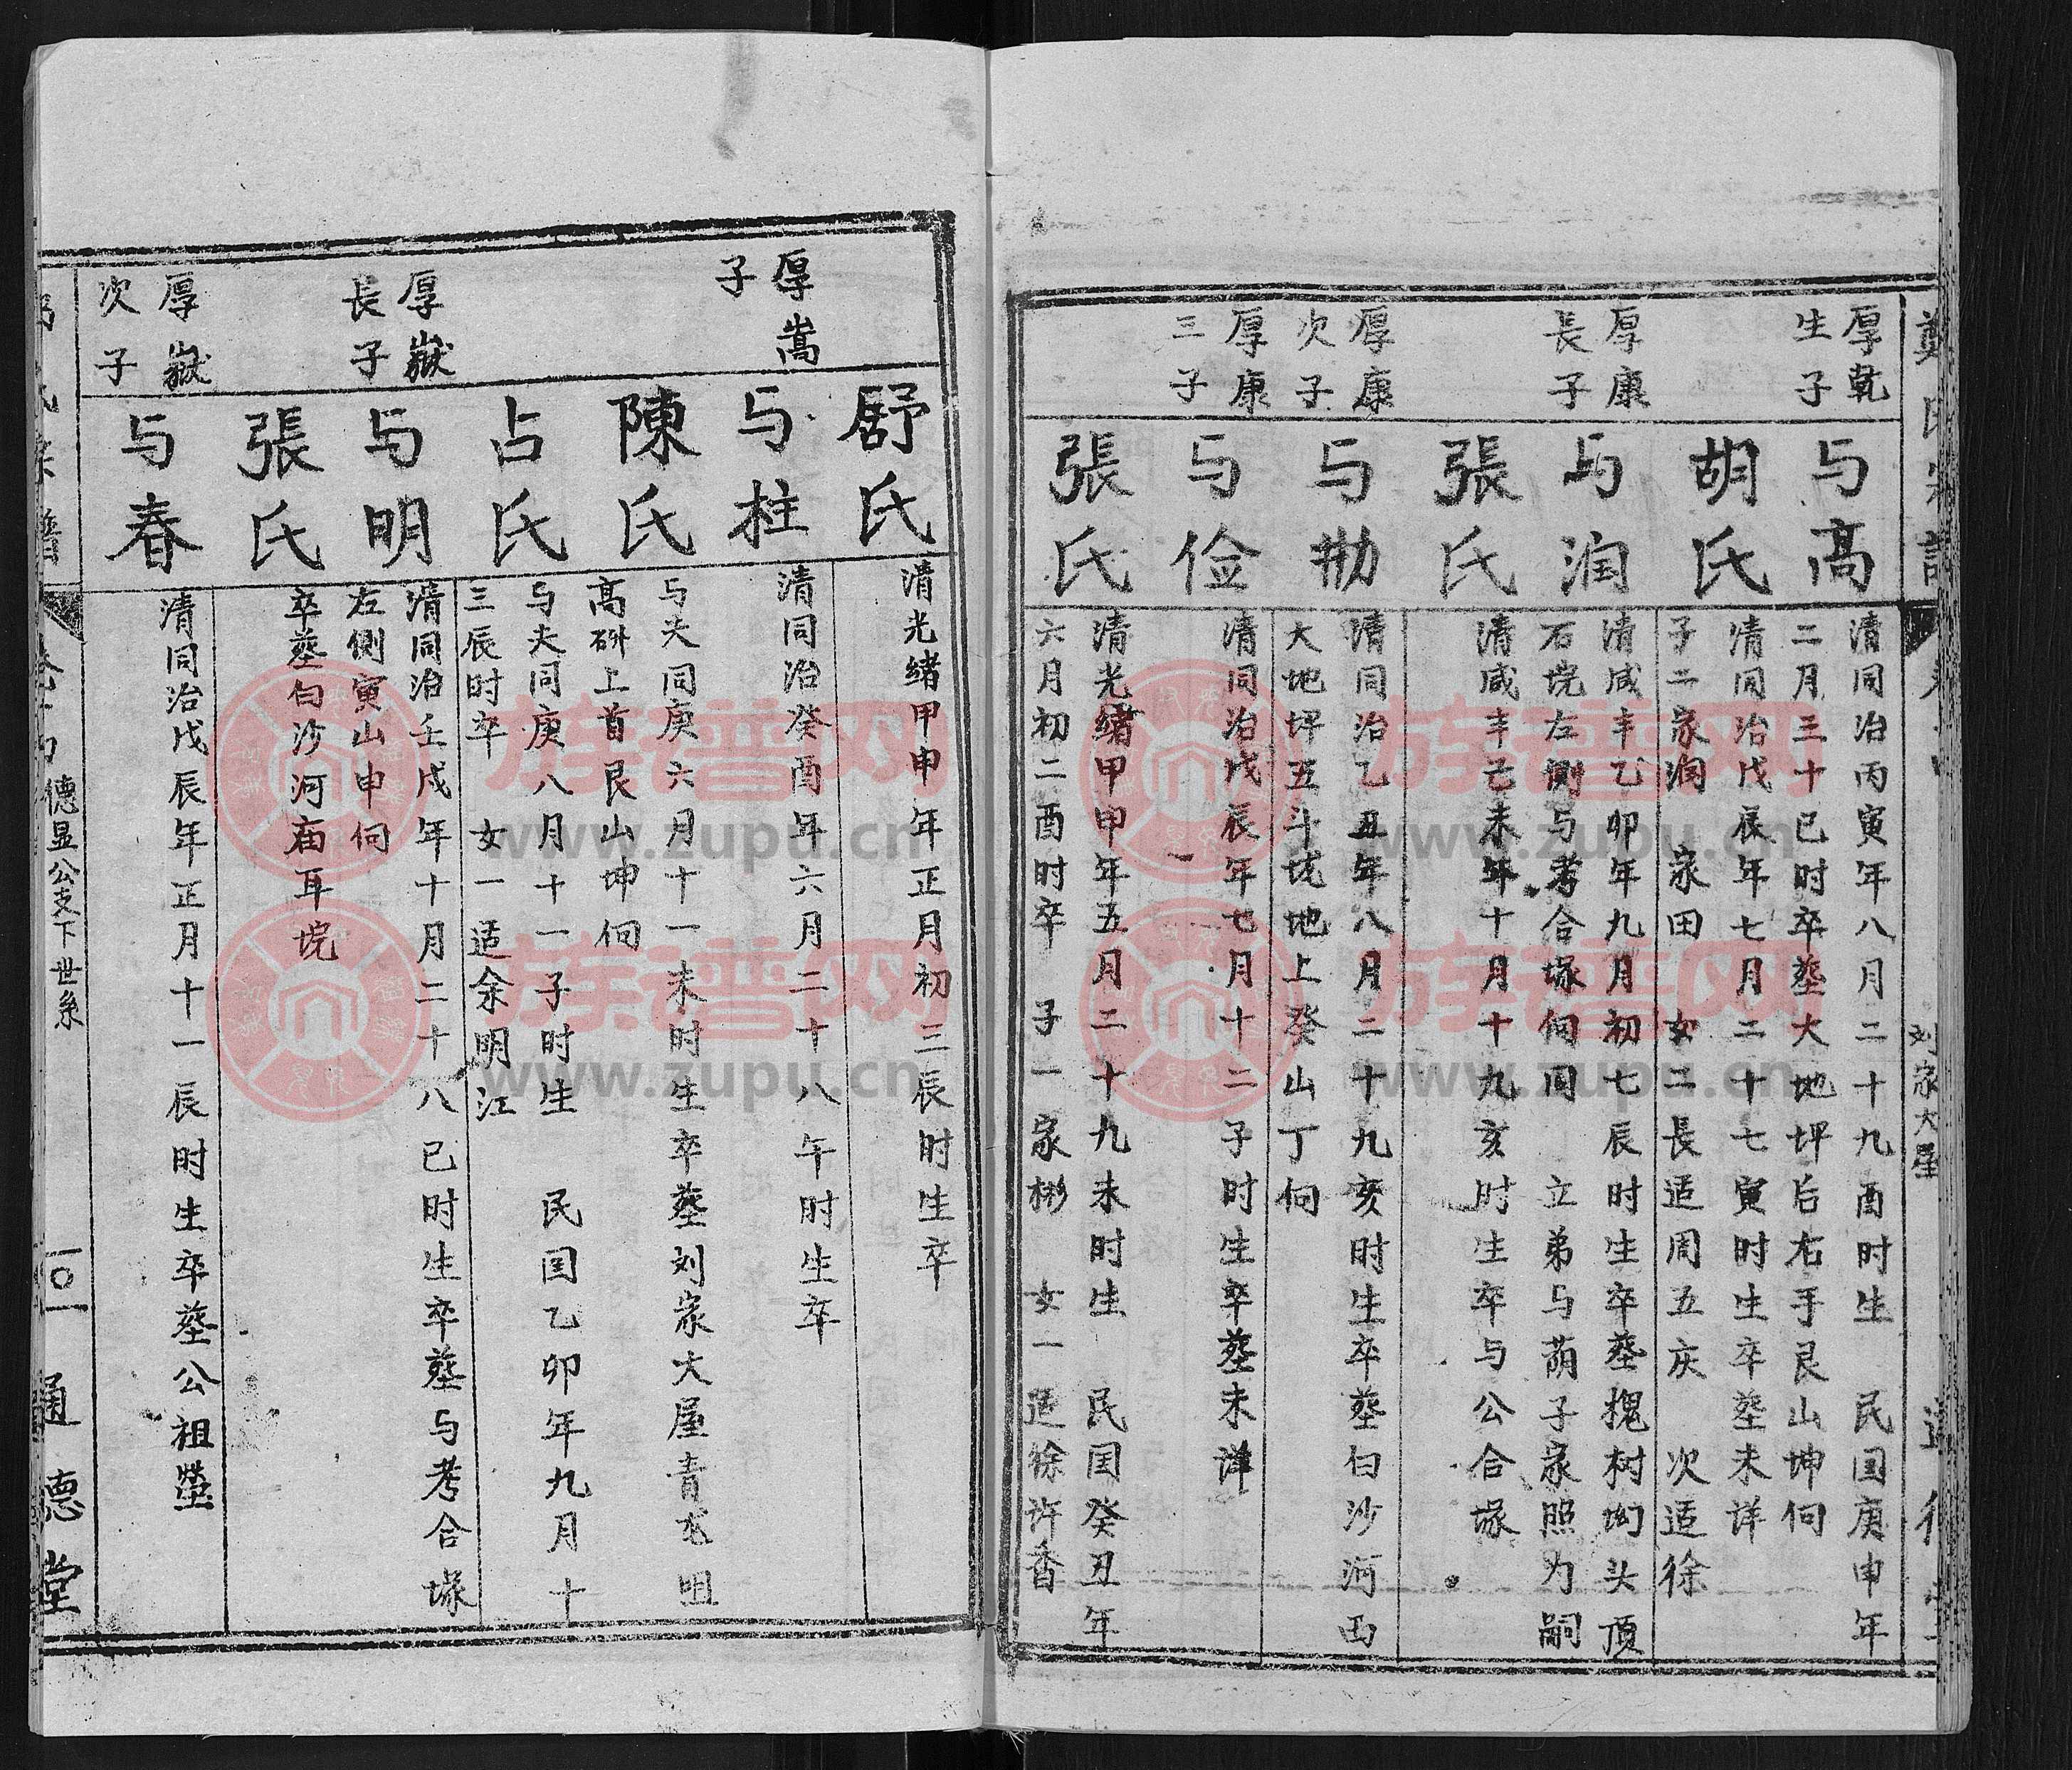 刘家大屋
厚乾
生子
与高
清同治丙寅年八月二十九酉时生 民国庚申年
二月三十巳时卒塟大地坪后右手艮山坤向
胡氏
清同治戊辰年七月二十七寅时生卒塟未详
子二家润 家田 女二長适周五庆 次适徐
厚康
長子
与润
清咸丰乙卯年九月初七辰时生卒塟槐树坳头頂
石塆左側与考合塚向同 立弟与萠子家照为嗣
張氏
清咸丰己未年十月十九亥时生卒与公合塚
厚康
次子
与勘
清同治乙丑年八月二十九亥时生卒塟白沙河西
大地坪五斗坵地上癸山丁向
厚康
三子
与俭
清同治戊辰年七月十二子时生卒塟未詳
張氏
清光緒甲申年五月二十九未时生 民国癸丑年
六月初二酉时卒 子一家彬 女一适徐许香
舒氏
清光緒甲申年正月初三辰时生卒
厚嵩
子
与柱
清同治癸酉年六月二十八午时生卒
陳氏
与夫同庚六月十一未时生卒塟刘家大屋青龙咀
高磡上首艮山坤向
占氏
与夫同庚八月十一子时生 民国乙卯年九月十
三辰时卒 女一适余明江
厚嶽
長子
与明
清同治壬戌年十月二十八巳时生卒塟与考合塚
左側寅山申向
張氏
卒塟白沙河庙耳塆
厚嶽
次子
与春
清同治戊辰年正月十一辰时生卒塟公祖塋
德显公支下世系
一〇一
通德堂
www.zupu.cn
www.zupu.cn
www.zupu.cn
www.zupu.cn
族谱网
族谱网
族谱网
族谱网